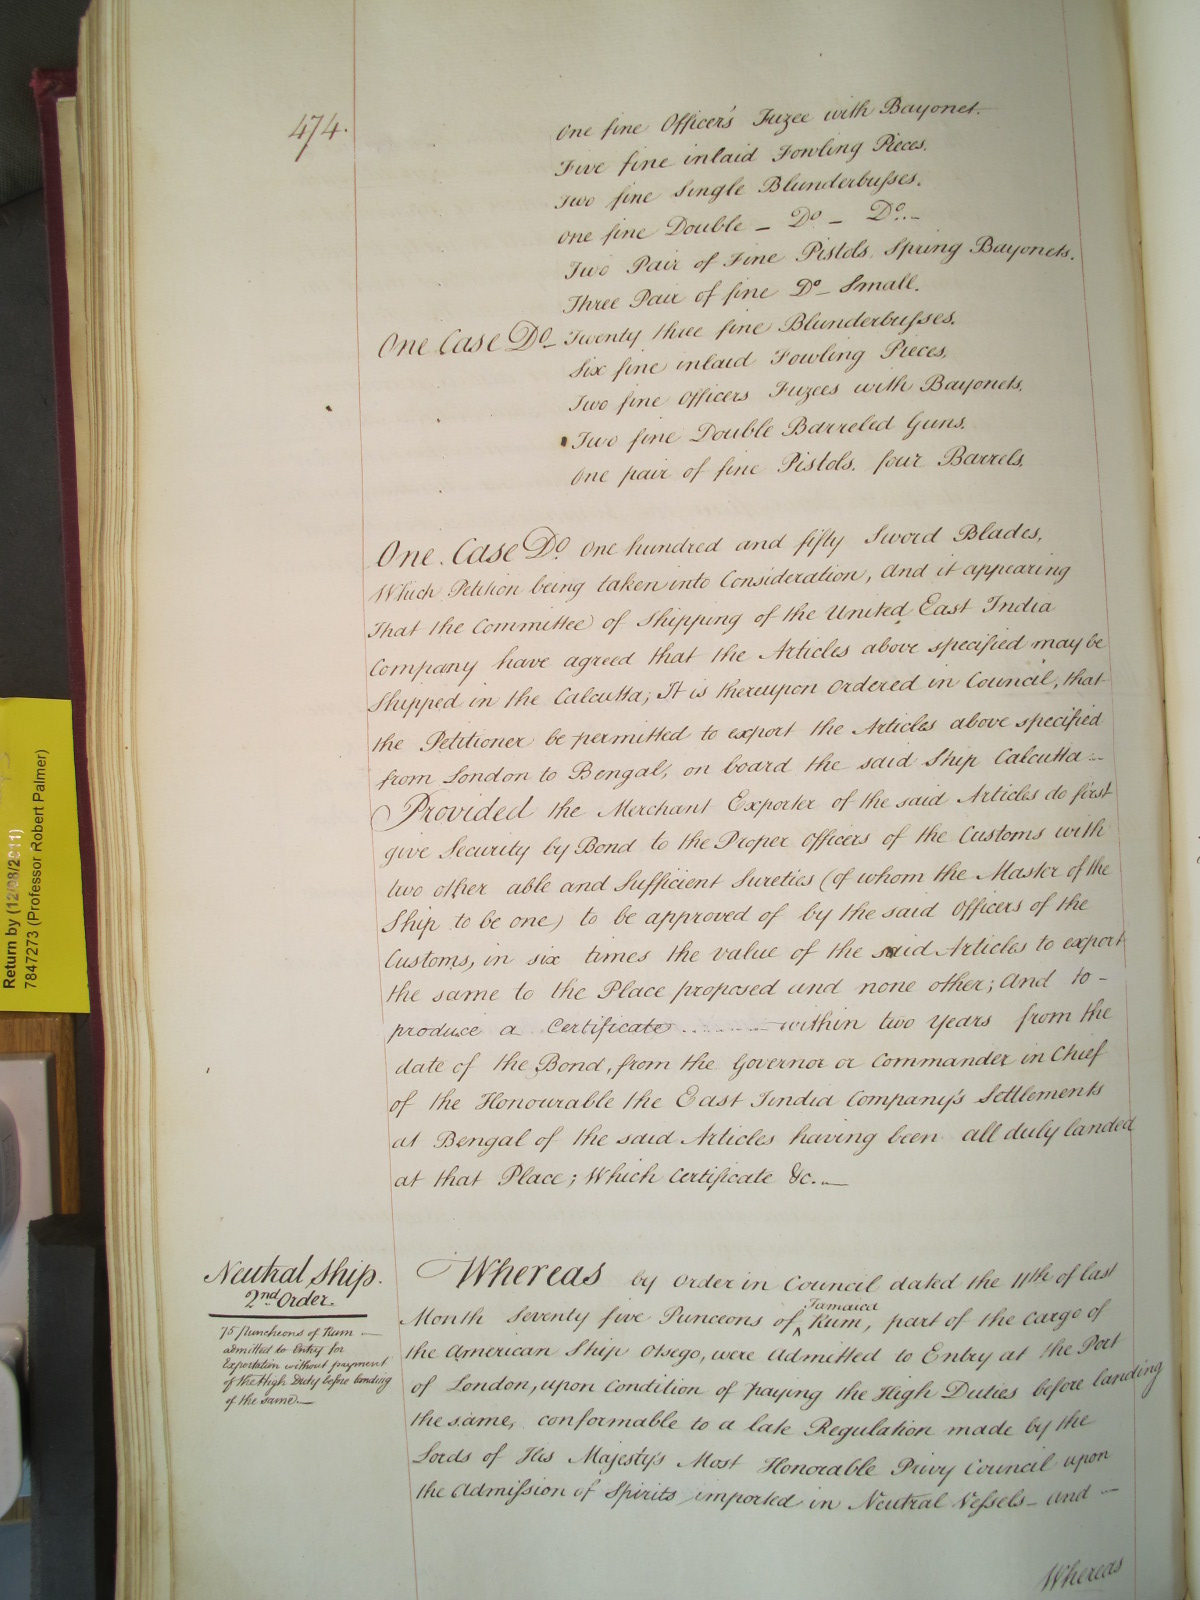 474.
One fine Officer's Fuzee with Bayonet.
Five fine inlaid Fowling Pieces.
Two fine Single Blunderbusses.
One fine Double _ Do _ Do._
Two Pair of Fine Pistols, Spring Bayonets.
Three Pair of fine Do_ Small.
One Case Do_ Twenty three fine Blunderbusses.
Six fine inlaid Fowling Pieces.
Two fine Officers Fuzees with Bayonets.
Two fine Double Barreled Guns.
One pair of fine Pistols. four Barrels.
One Case Do One hundred and fifty Sword Blades.
Which Petition being taken into Consideration, And it appearing
That the Committee of Shipping of the United East India
Company have agreed that the Articles above specified may be
Shipped in the Calcutta; It is thereupon Ordered in Council, that
the Petitioner be permitted to export the Articles above specified
from London to Bengal, on board the said Ship Calcutta
Provided the Merchant Exporter of the said Articles do first
give Security by Bond to the Proper Officers of the Customs with
two other able and Sufficient Sureties (of whom the Master of the
Ship to be one) to be approved of by the said Officers of the
Customs, in six times the value of the said Articles to export
the same to the Place proposed and none other; And to -
produce a Certificate ........ within two Years from the
date of the Bond, from the Governor or Commander in Chief
of the Honourable the East Jindia Company's Settlements
at Bengal of the said Articles having been all duly landed
at that Place; Which Certificate &c._
Neutral Ship.
2nd Order.
75 Puncheons of Rum
admitted to Entry for
Exportation without payment
of the High Duty before landing
of the same._
Whereas by Order in Council dated the 11th of last
Month Seventy five Punceons of ^Jamaica Rum, part of the Cargo of
the American Ship Otsego, were Admitted to Entry at the Port
of London, upon Condition of paying the High Duties before landing
the same, conformable to a late Regulation made by the
Lords of His Majesty's Most Honorable Privy Council upon
the Admission of Spirits imported in Neutral Vessels _ and _
Whereas
Return by (12/08/2011)
7847273 (Professor Robert Palmer)